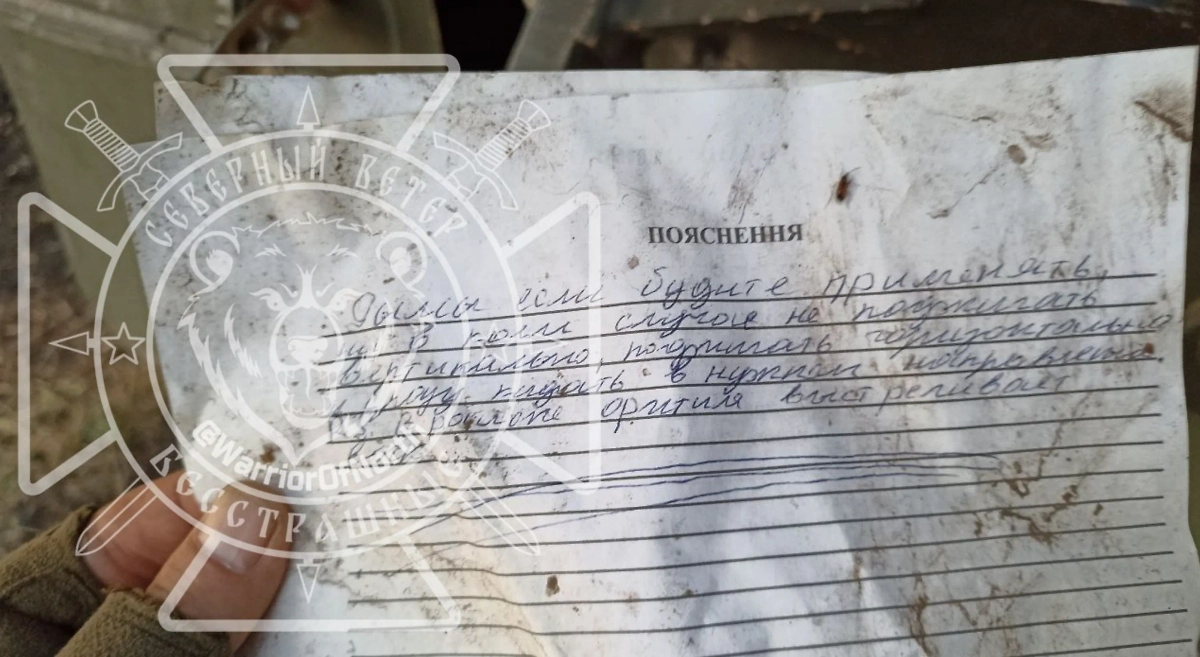 СЕВЕРНЫЙ ВЕТЕР
@WarriorOfNorth
БЕССТРАШНЫЙ
ПОЯСНЕННЯ
Дымы если будите применять,
ни в коем случае не поджигать
вертикально, поджигать горизонтально
и сразу кидать в нужном направлении
оритиля выстреливает